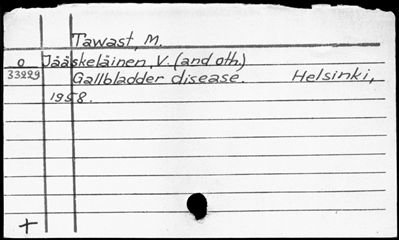 Tawast, M.
o Jääskeläinen, V. (and oth.)
33229 Gallbladder disease. Helsinki,
1958.
+